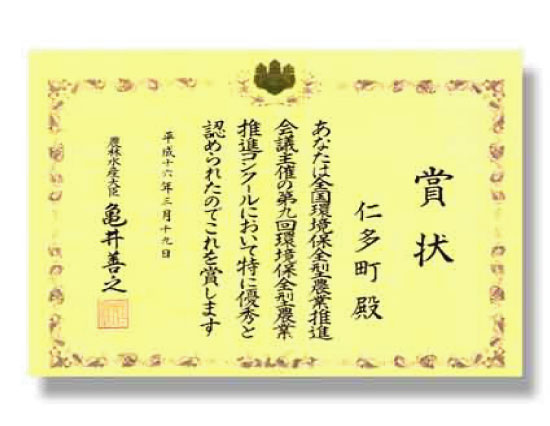 賞状
仁多町殿
あなたは全国環境保全型農業推進
会議主催の第九回環境保全型農業
推進コンクールにおいて特に優秀と
認められたのでこれを賞します
平成十六年三月十九日
農林水産大臣 亀井善之